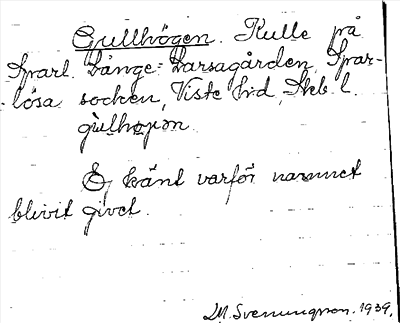 Gullhögen. Kulle på
Sparl. Långe-Larsagården, Spar-
lösa socken, Viste hd, Skb. l.
gulhøgǝn.
Ej känt varför namnet
blivit givet.
M. Svenungson. 1939.